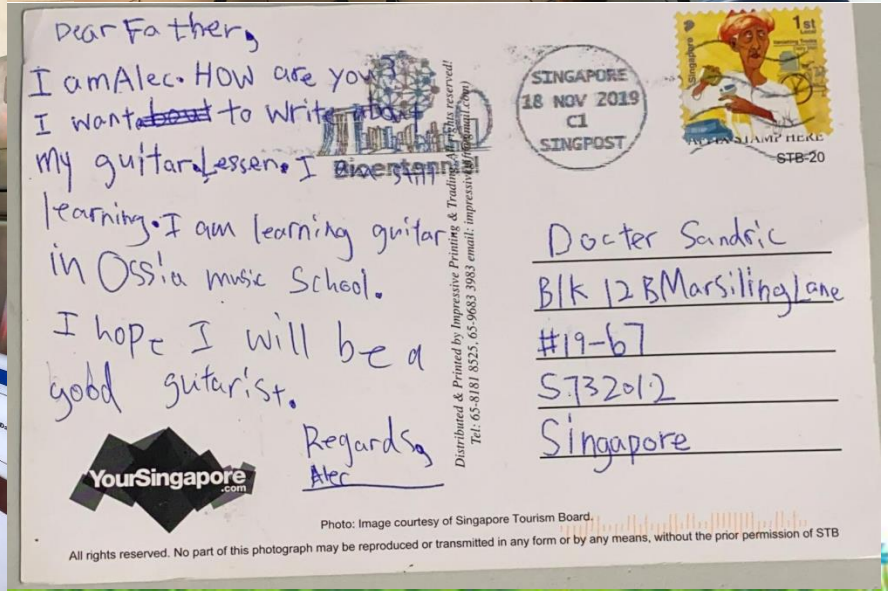 Dear Father,
I am Alec. How are you?
I want about to write about
my guitar Lessen. I am still
learning. I am learning guitar
in Ossia music School.
I hope I will be a
good gutarist.
Regards,
Alec
YourSingapore
.com
Bicentennial
Distributed & Printed by Impressive Printing & Trading. All rights reserved!
Tel: 65-8181 8525, 65-9683 3983 email:
SINGAPORE
18 NOV 2019
C1
SINGPOST
Singapore
1st
Local
STAMP HERE
STB-20
Docter Sandric
Blk 12B Marsiling Lane
#19-67
S732012
Singapore
Photo: Image courtesy of Singapore Tourism Board.
All rights reserved. No part of this photograph may be reproduced or transmitted in any form or by any means, without the prior permission of STB